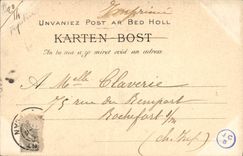 Imprimé
UNVANIEZ POST AR BED HOLL
KARTEN-BOST
An tu ma na n miret evid an adress
A Melle Claverie
75 rue du Rempart
Rochefort s/m
(ch. Inf.)